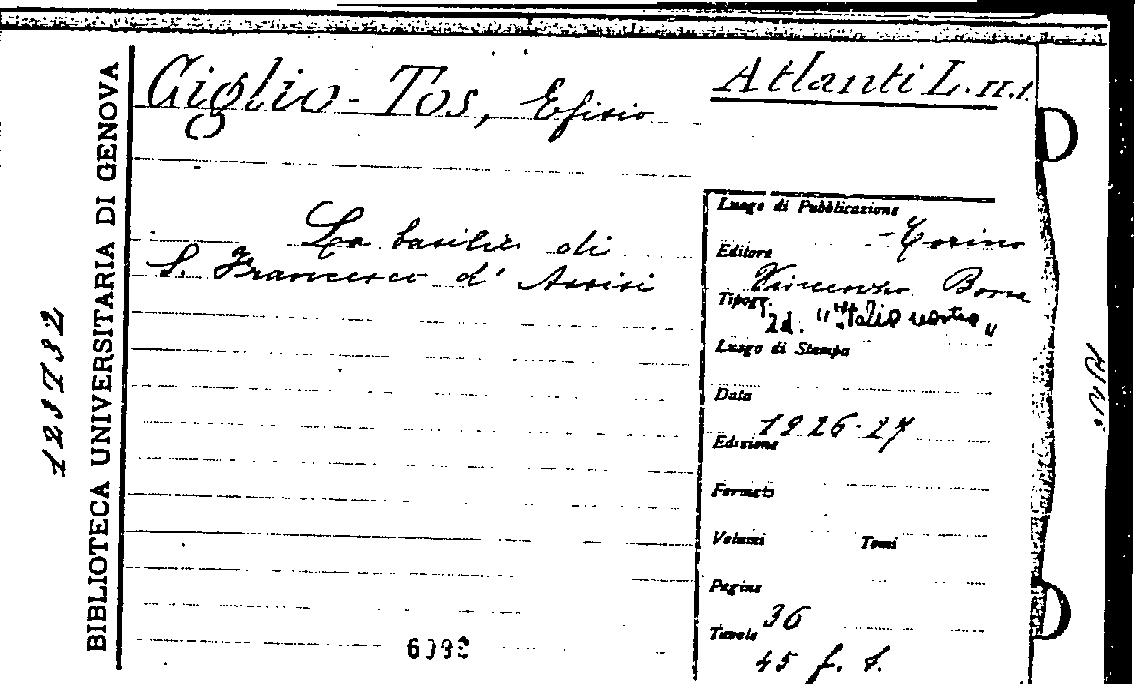 Giglio-Tos, Efisio
Atlanti L. II. 1.
BIBLIOTECA UNIVERSITARIA DI GENOVA
123732
La basilica di
S. Francesco d'Assisi
Luogo di Pubblicazione
Torino
Editore
Vincenzo Bona
Tipogr.
Ed. "Italia nostra"
Luogo di Stampa
Data
1926-27
Edizione
Formato
Volumi Tomi
Pagine
36
Tavole
45 f. t.